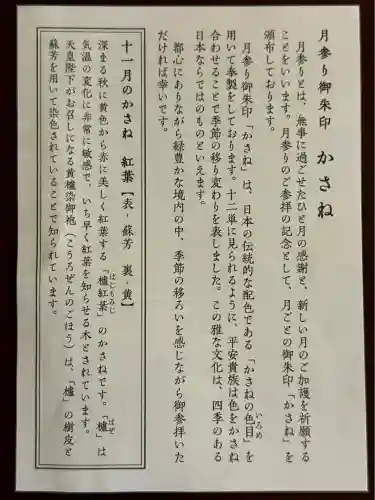 月参り御朱印 かさね
月参りとは、無事に過ごせたひと月の感謝と、新しい月のご加護を祈願する
ことをいいます。月参りのご参拝の記念として、月ごとの御朱印「かさね」を
頒布しております。
月参り御朱印「かさね」は、日本の伝統的な配色である「かさねの色目」を
いろめ
用いて奉製をしております。十二単に見られるように、平安貴族は色をかさね
合わせることで季節の移り変わりを表しました。この雅な文化は、四季のある
日本ならではのものといえます。
都心にありながら緑豊かな境内の中、季節の移ろいを感じながら御参拝いた
だければ幸いです。
十一月のかさね 紅葉【表‐蘇芳 裏‐黄】
深まる秋に黄色から赤に美しく紅葉する「櫨紅葉」のかさねです。「櫨」は
はじもみじ はぜ
気温の変化に非常に敏感で、いち早く紅葉を知らせる木とされています。
天皇陛下がお召しになる黄櫨染御袍（こうろぜんのごほう）は、「櫨」の樹皮と
蘇芳を用いて染色されていることで知られています。